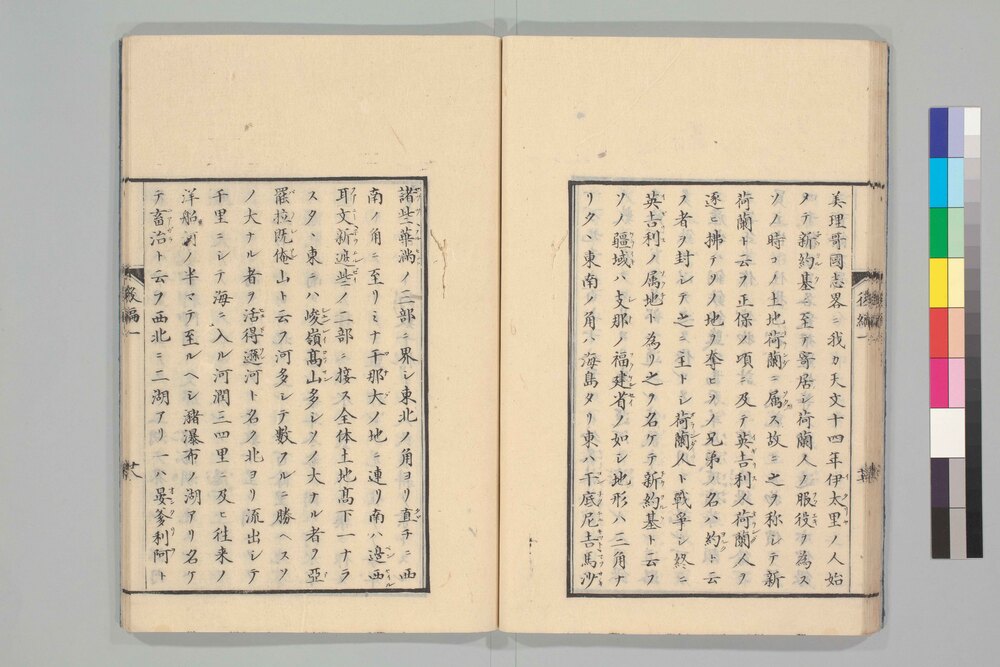 美理哥國志畧ニ我カ天文十四年伊太里ノ人始
メテ新約基ニ至テ寄居シ荷蘭人ノ服役ヲ為ス
ソノ時コノ土地荷蘭ニ属ス故ニ之ヲ称シテ新
荷蘭ト云フ正保ノ頃ニ及テ英吉利人荷蘭人ヲ
逐ヒ拂テソノ地ヲ奪ヒソノ兄弟ノ名ハ約ト云
ノ者ヲ封シテ之ニ主トシ荷蘭人ト戦争シ終ニ
英吉利ノ属地ト為リ之ヲ名ケテ新約基ト云フ
ソノ疆域ハ支那ノ福建省ノ如シ地形ハ三角ナ
リタヽ東南ノ角ハ海島タリ東ハ干底尼吉馬沙
諸些華満ノ三部ニ界シ東北ノ角ヨリ直チニ西
南ノ角ニ至リミナ干那大ノ地ニ連リ南ハ邉西
耳文新遮些ノ二部ニ接ス全体土地髙下一ナラ
スタヽ東ニハ峻嶺髙山多シソノ大ナル者ヲ亞
罷拉既俺山ト云フ河多シテ數フルニ勝ヘスソ
ノ大ナル者ヲ活得遜河ト名ク北ヨリ流出シテ
千里ニシテ海ニ入ル河濶三四里ニ及ヒ往来ノ
洋舶河ノ半マテ至ルヘシ瀦瀑布ノ湖アリ名ケ
テ畜治ト云フ西北ニ二湖アリ一ハ晏爹利阿ト